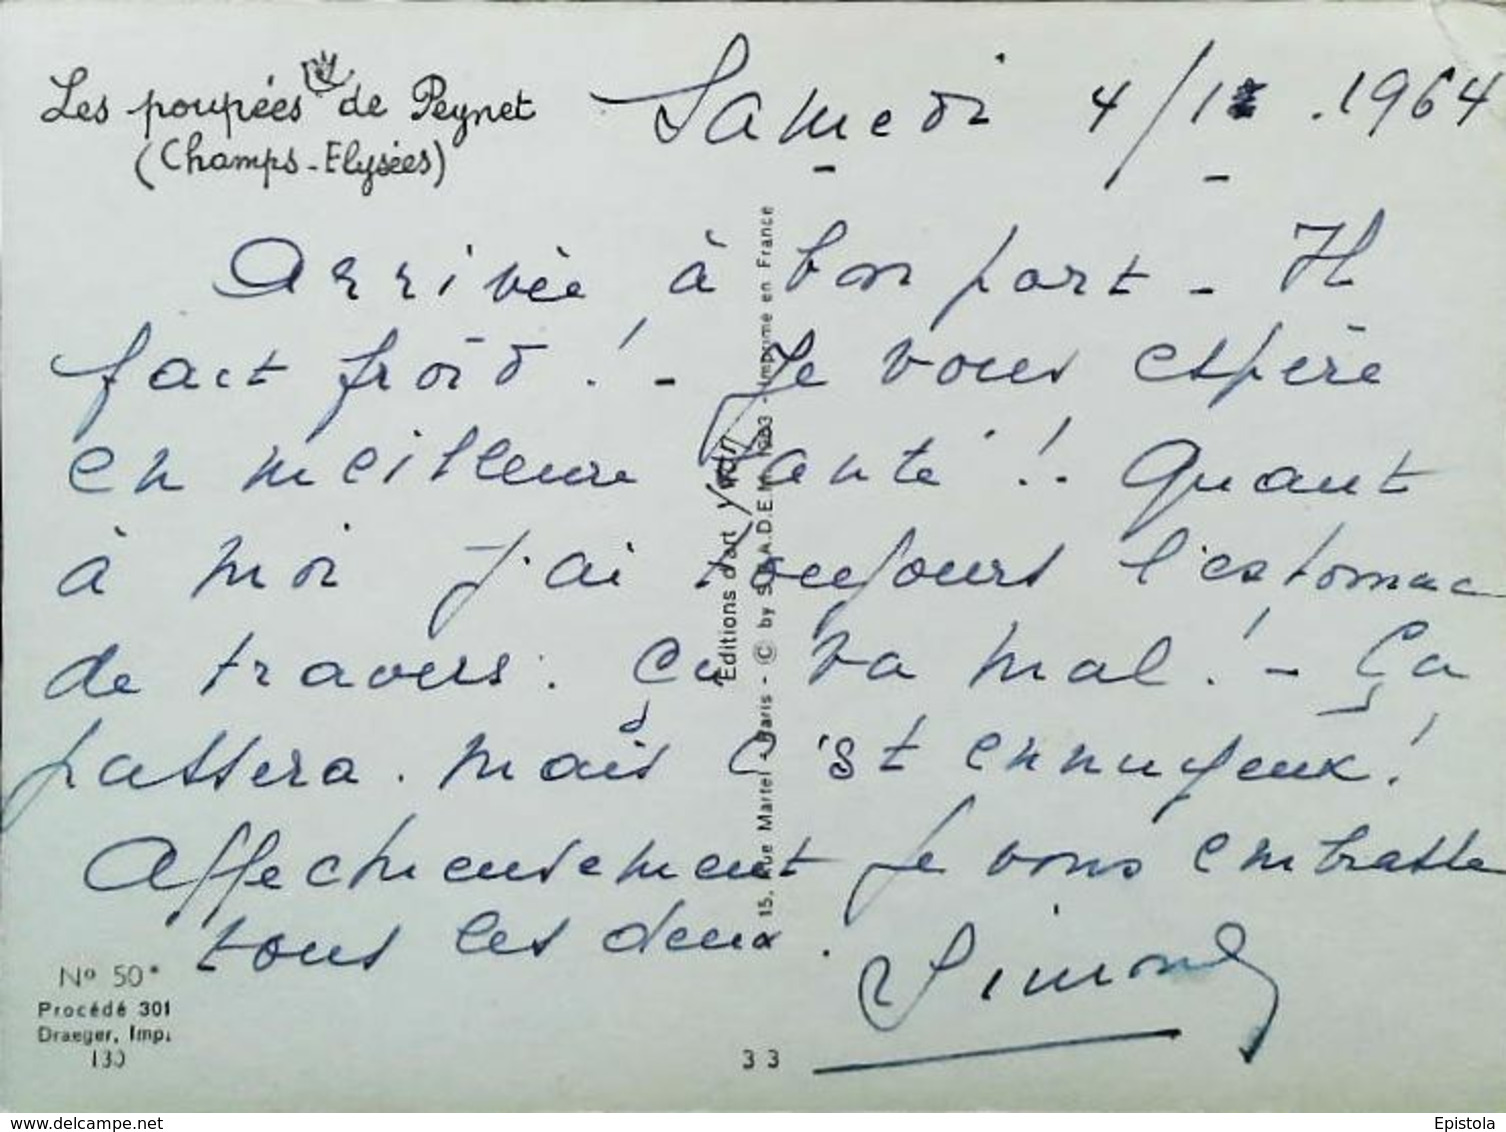 Les poupées de Peynet
(Champs-Elysées)
Samedi 4/1 .1964
Arrivée à bon port - Il
fait froid ! - Je vous espère
en meilleure santé !. Quant
à moi j'ai toujours l'estomac
de travers. Ça va mal ! - Ça
passera. mais c'est ennuyeux !
Affectueusement je vous embrasse
tous les deux.
Simone
Editions d'art Yvon
15, Rue Martel - Paris - © by S.P.A.D.E.M. 1963 - Imprimé en France
No 50*
Procédé 301
Draeger, Imp.
130
33
www.delcampe.net
Epistola